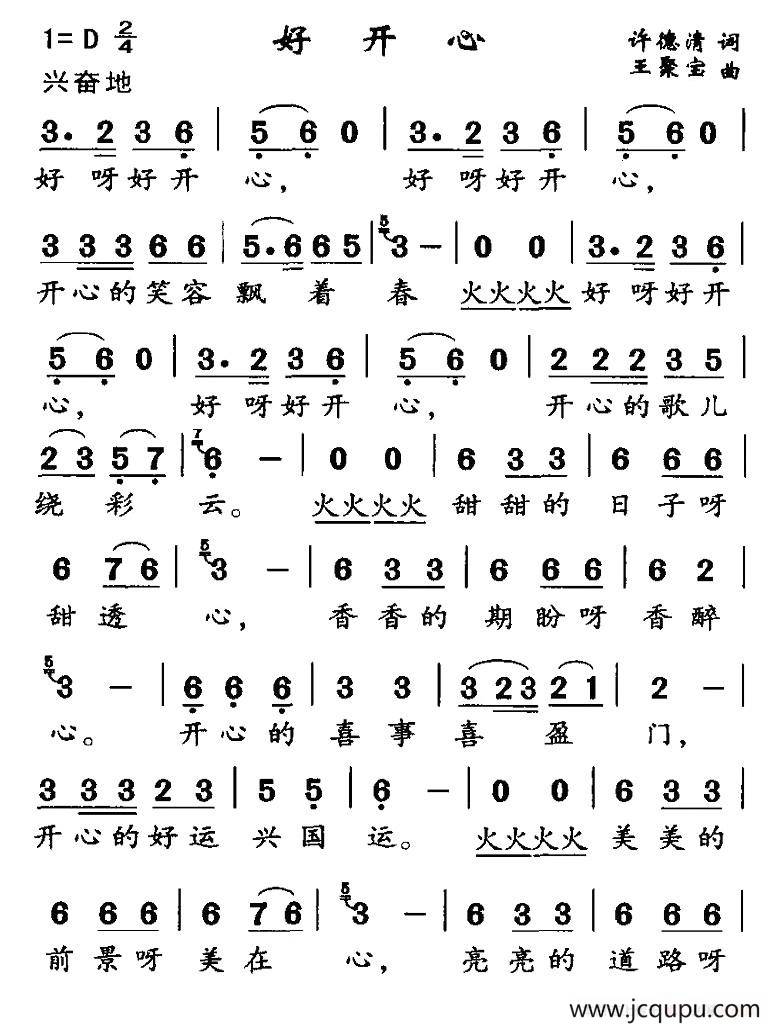 1= D 2/4 好开心 许德清 词
兴奋地 王聚宝 曲
3. 2 3 6 | 5 6 0 | 3. 2 3 6 | 5 6 0 |
好 呀 好 开 心， 好 呀 好 开 心，
3 3 3 6 6 | 5. 6 6 5 | 5 3 – | 0 0 | 3. 2 3 6 |
开 心 的 笑 容 飘 着 春 火火火火 好 呀 好 开
5 6 0 | 3. 2 3 6 | 5 6 0 | 2 2 2 3 5 |
心， 好 呀 好 开 心， 开 心 的 歌 儿
2 3 5 7 | 7 6 – | 0 0 | 6 3 3 | 6 6 6 |
绕 彩 云。 火火火火 甜 甜 的 日 子 呀
6 7 6 | 5 3 – | 6 3 3 | 6 6 6 | 6 2 |
甜 透 心， 香 香 的 期 盼 呀 香 醉
5 3 – | 6 6 6 | 3 3 | 3 2 3 2 1 | 2 – |
心。 开 心 的 喜 事 喜 盈 门，
3 3 3 2 3 | 5 5 | 6 – | 0 0 | 6 3 3 |
开 心 的 好 运 兴 国 运。 火火火火 美 美 的
6 6 6 | 6 7 6 | 5 3 – | 6 3 3 | 6 6 6 |
前 景 呀 美 在 心， 亮 亮 的 道 路 呀
www.jcqupu.com